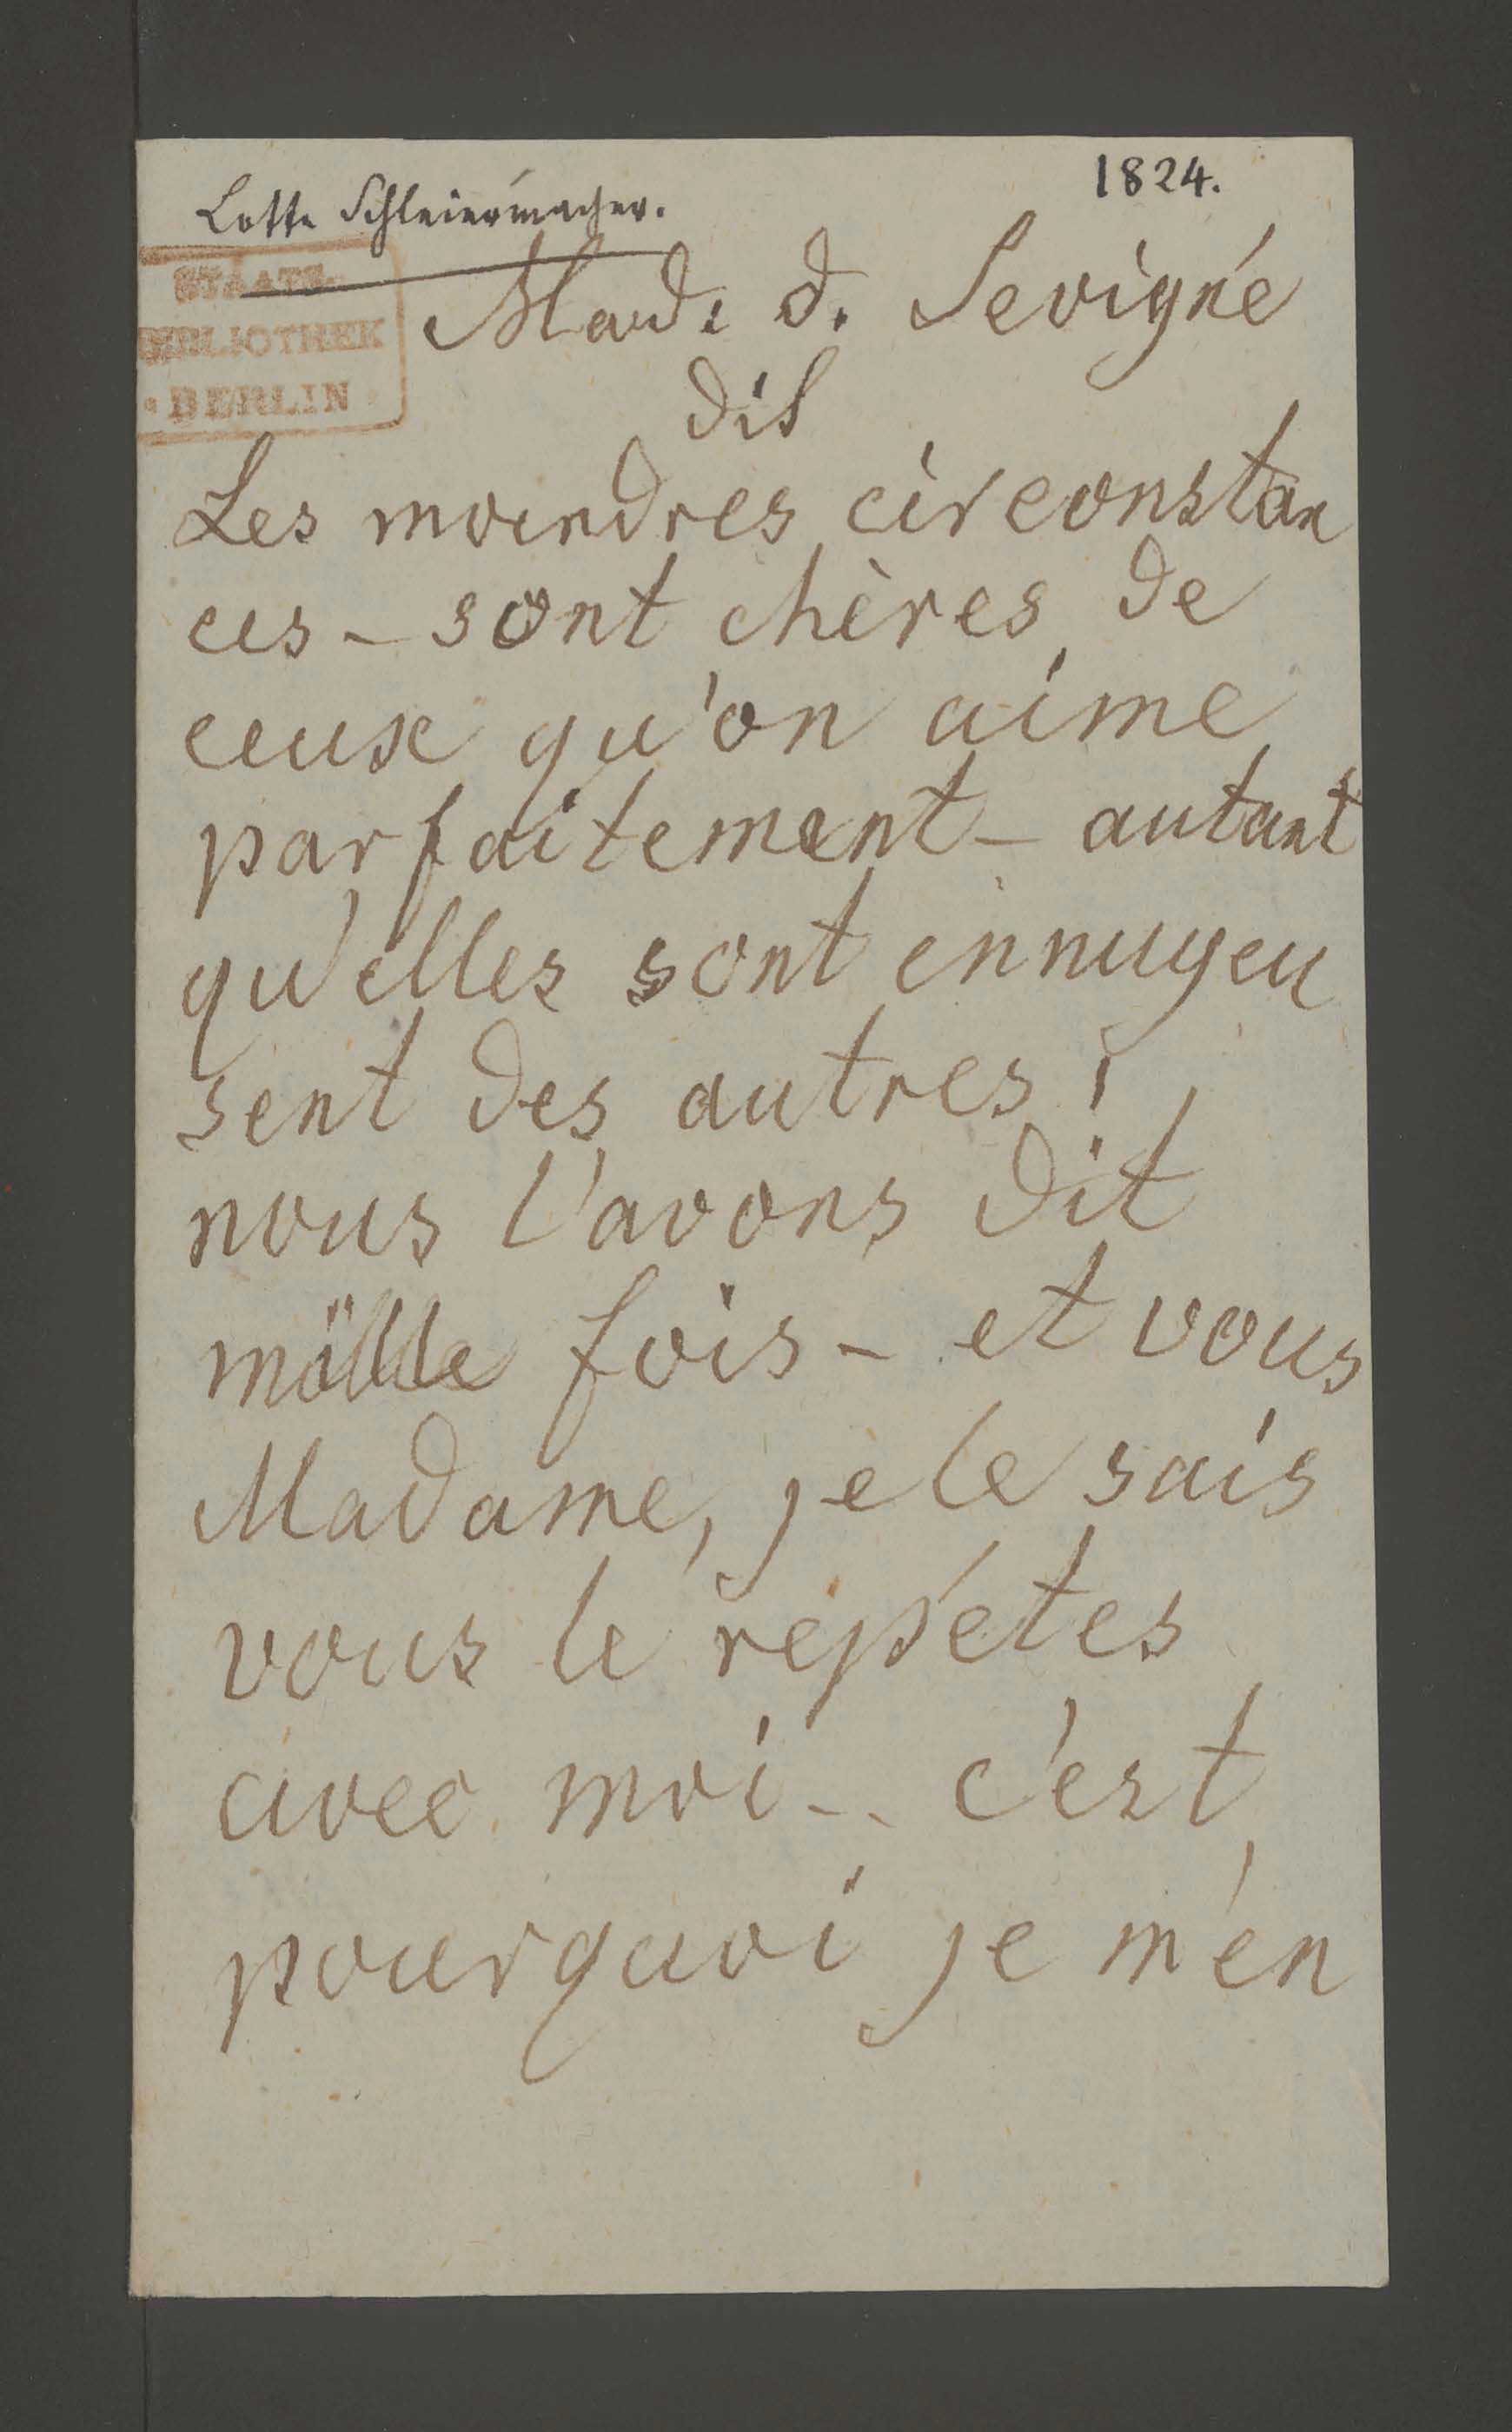 1824.
Lotte Schleiermacher.
STAATS-
BIBLIOTHEK
BERLIN
Mad: d. Sevigné
dit
Les moindres circonstan
ces - sont chères de
ceux qu'on aime
parfaitement - autant
qu'elles sont ennuyeu
sent des autres!
nous l'avons dit
mille fois - et vous
Madame, je le sais
vous le répétes
avec moi - . c'est
pourquoi je m'en